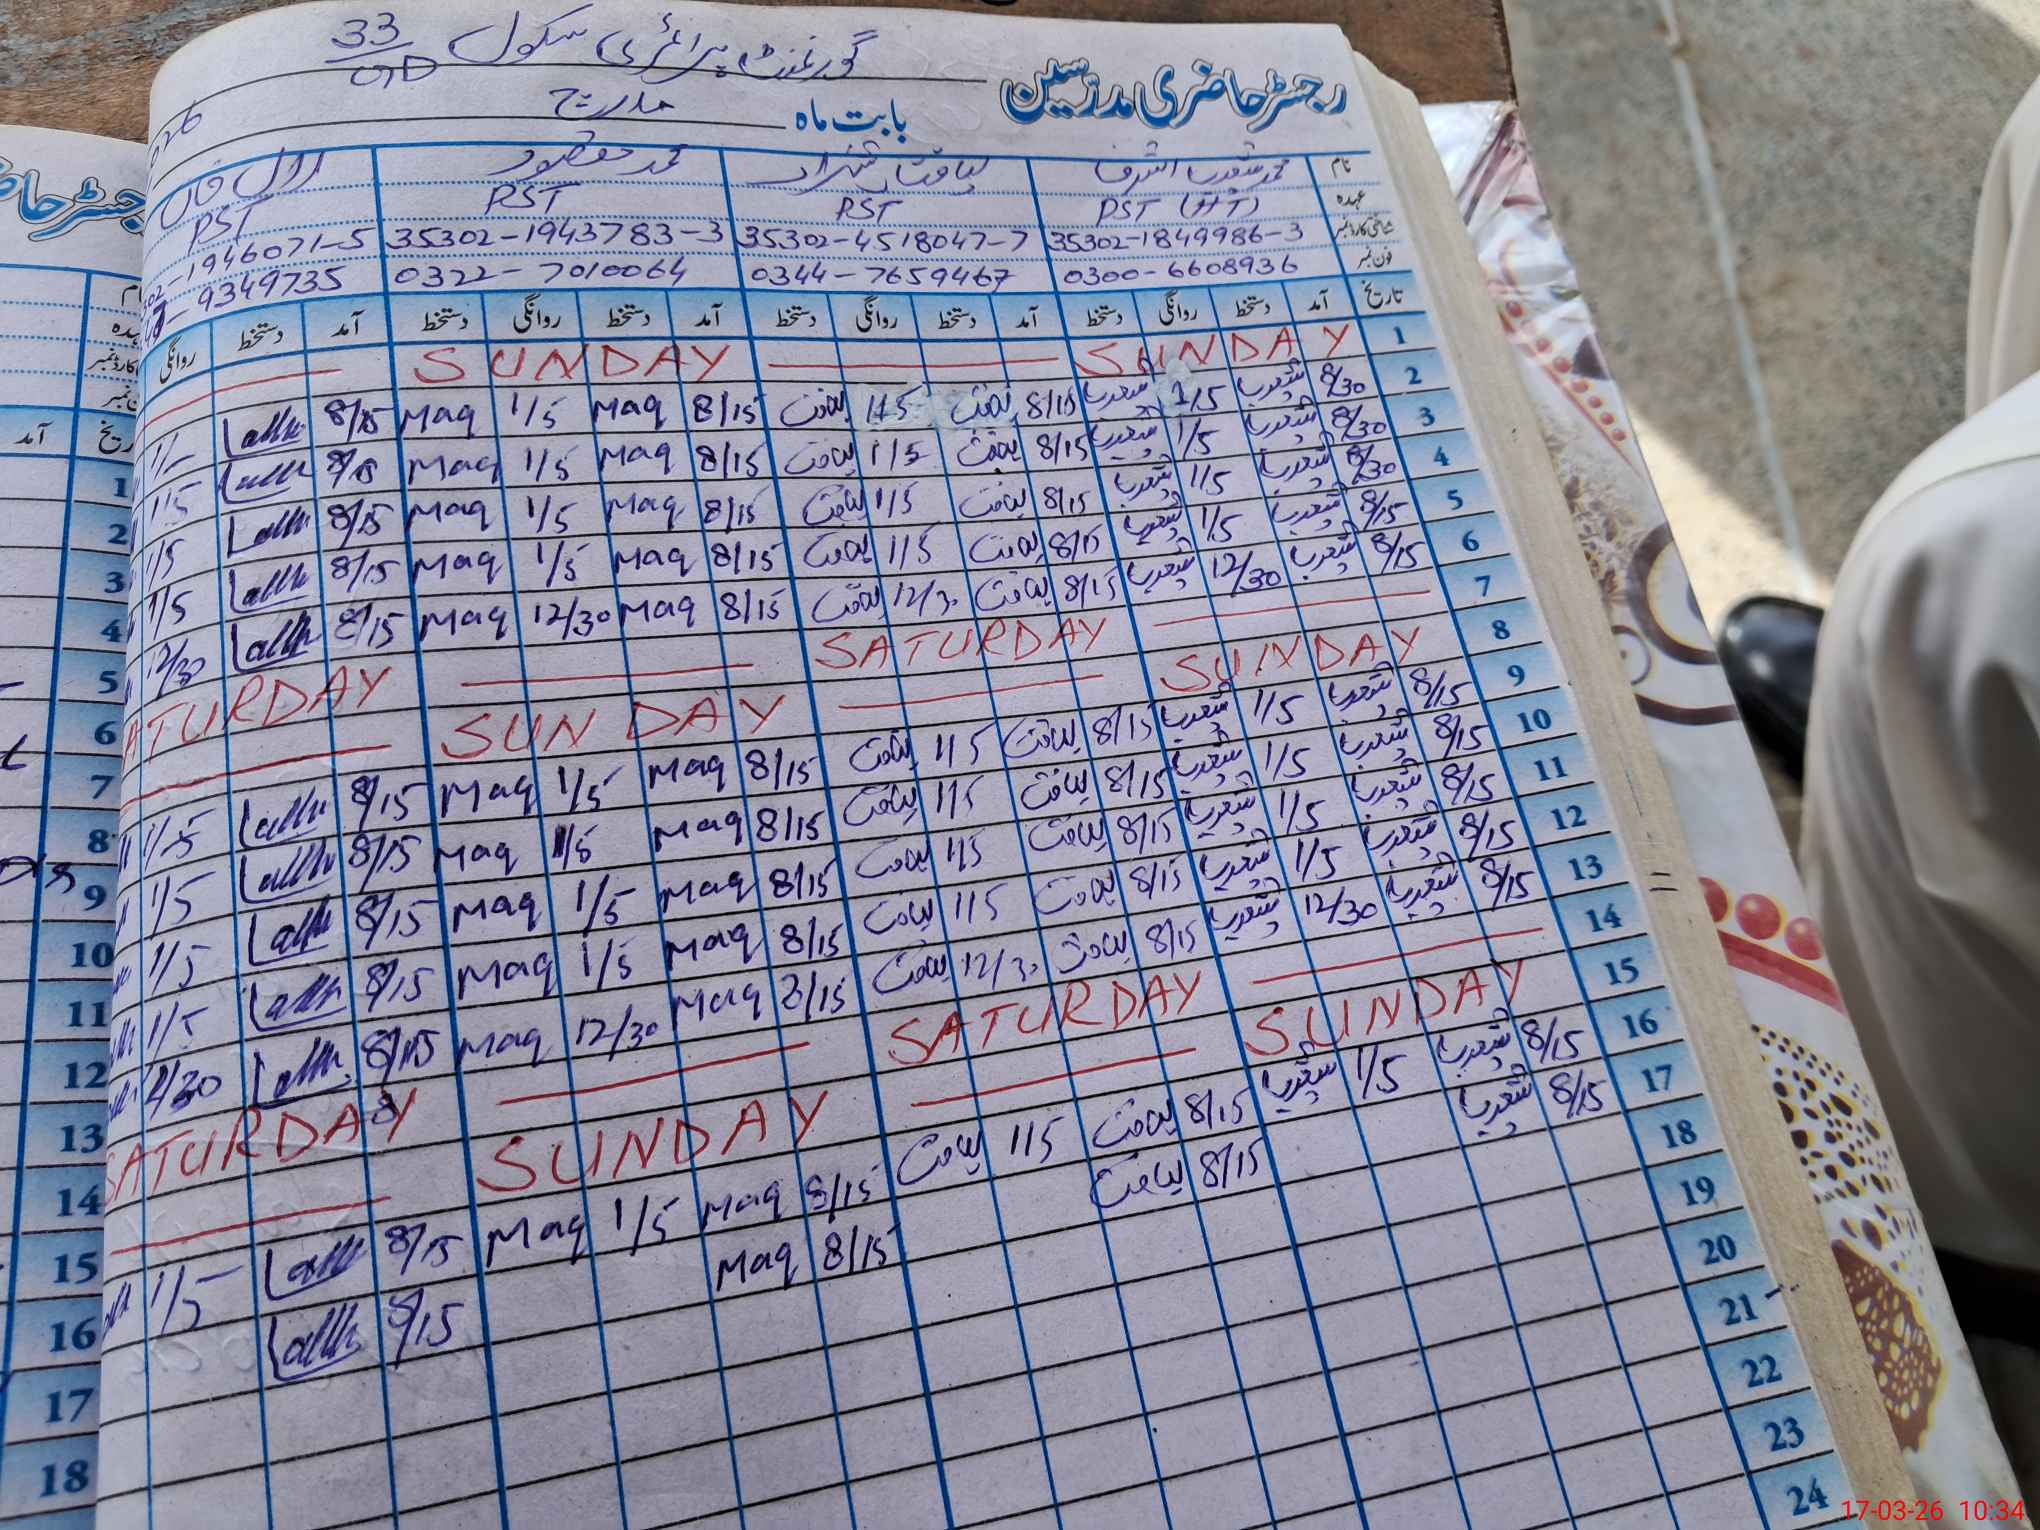 رجسٹر حاضری مدرّسین گورنمنٹ پرائمری سکول 33/GD
بابت ماہ مارچ
نام محمد شعیب اشرف لیاقت شہزاد محمد مقصود
عہدہ PST (HT) PST PST PST
شناختی کارڈ نمبر 35302-1849986-3 35302-4518047-7 35302-1943783-3 -1946071-5
فون نمبر 0300-6608936 0344-7659467 0322-7010064 -9349735
تاریخ آمد دستخط روانگی دستخط آمد دستخط روانگی دستخط آمد دستخط روانگی دستخط آمد دستخط روانگی
1 SUNDAY SUNDAY
2 8/30 شعیب 1/5 شعیب 8/15 لیاقت 1/5 لیاقت 8/15 Maq 1/5 Maq 8/15
3 8/30 شعیب 1/5 شعیب 8/15 لیاقت 1/5 لیاقت 8/15 Maq 1/5 Maq 8/15 1/5
4 8/30 شعیب 1/5 شعیب 8/15 لیاقت 1/5 لیاقت 8/15 Maq 1/5 Maq 8/15 1/5
5 8/15 شعیب 1/5 شعیب 8/15 لیاقت 1/5 لیاقت 8/15 Maq 1/5 Maq 8/15 1/5
6 8/15 شعیب 12/30 شعیب 8/15 لیاقت 12/30 لیاقت 8/15 Maq 12/30 Maq 8/15 12/30
7 SATURDAY SATURDAY
8 SUNDAY SUNDAY
9 8/15 شعیب 1/5 شعیب 8/15 لیاقت 1/5 لیاقت 8/15 Maq 1/5 Maq 8/15 1/5
10 8/15 شعیب 1/5 شعیب 8/15 لیاقت 1/5 لیاقت 8/15 Maq 1/5 Maq 8/15 1/5
11 8/15 شعیب 1/5 شعیب 8/15 لیاقت 1/5 لیاقت 8/15 Maq 1/5 Maq 8/15 1/5
12 8/15 شعیب 1/5 شعیب 8/15 لیاقت 1/5 لیاقت 8/15 Maq 1/5 Maq 8/15 1/5
13 8/15 شعیب 12/30 شعیب 8/15 لیاقت 12/30 لیاقت 8/15 Maq 12/30 Maq 8/15 12/30
14 SATURDAY SATURDAY
15 SUNDAY SUNDAY
16 8/15 شعیب 1/5 شعیب 8/15 لیاقت 1/5 لیاقت 8/15 Maq 1/5 Maq 8/15 1/5
17 8/15 شعیب 8/15 لیاقت 8/15 Maq 8/15
18
19
20
21
22
23
24
آمد
1
2
3
4
5
6
7
8
9
10
11
12
13
14
15
16
17
18
17-03-26 10:34